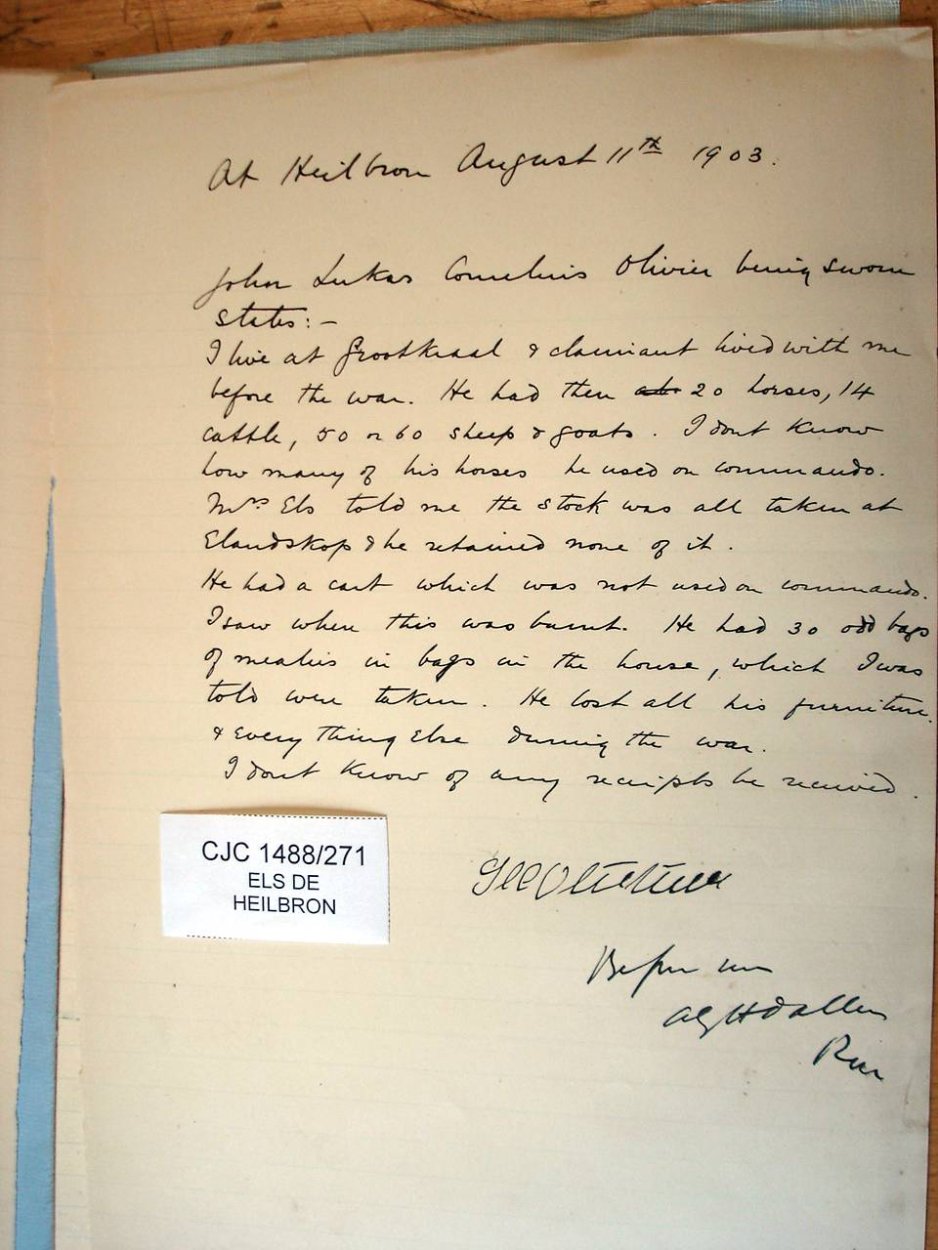 At Heilbron August 11th 1903.
John Lukas Cornelius Olivier being sworn
states:-
I live at Grootkraal & claimant lived with me
before the war. He had then 20 horses, 14
cattle, 50 or 60 sheep & goats. I dont know
how many of his horses he used on commando.
Mrs Els told me the stock was all taken at
Elandskop & he retained none of it.
He had a cart which was not used on commando.
I saw where this was burnt. He had 30 odd bags
of mealies in bags in the house, which I was
told were taken. He lost all his furniture
& everything else during the war.
I dont know of any receipts he received.
CJC 1488/271
ELS DE
HEILBRON
Before me